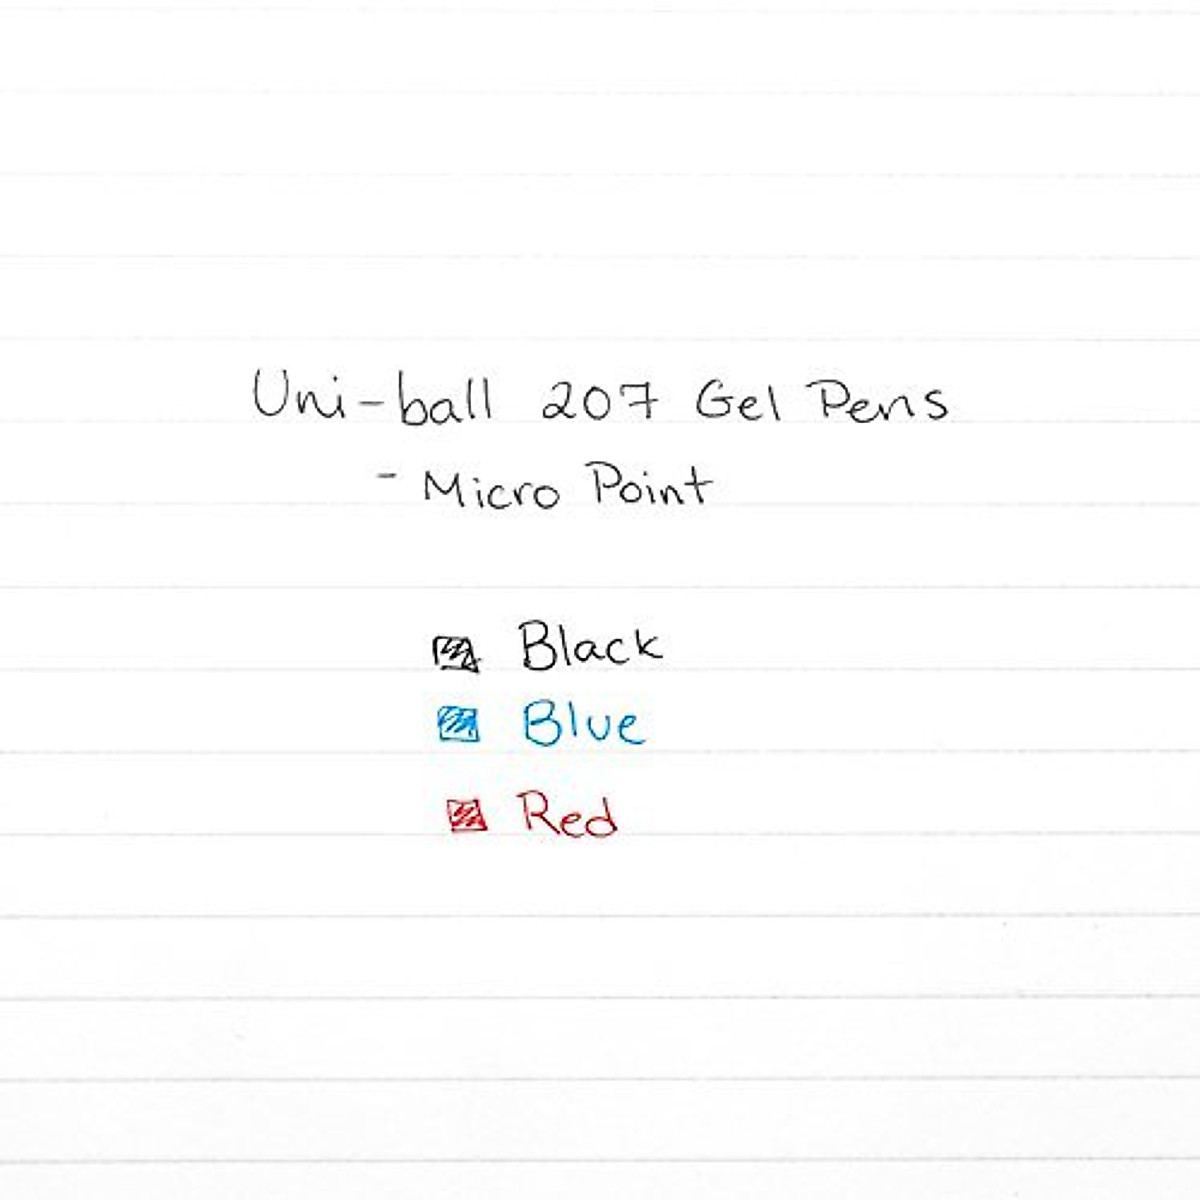 Uni-ball 207 Gel Pens
- Micro Point
Black
Blue
Red